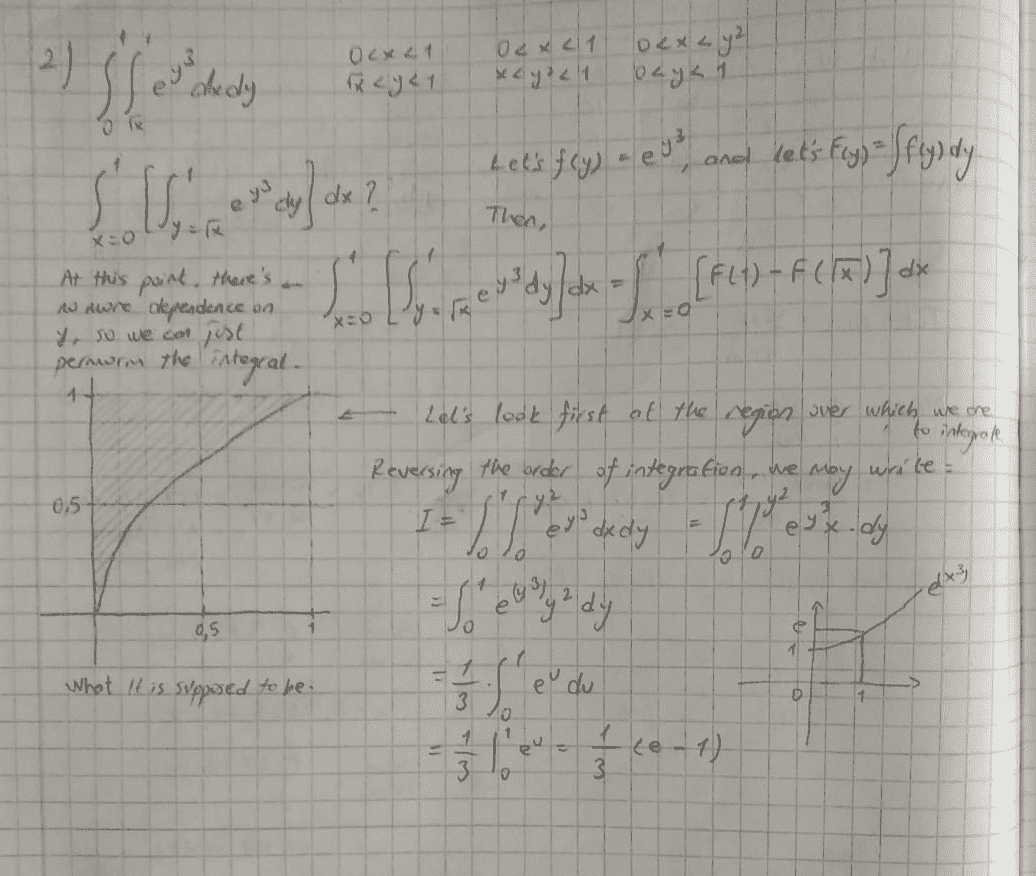 2) ∫₀¹ ∫_√x¹ e^y³ dxdy
0<x<1
√x<y<1
0<x<1
x<y²<1
0<x<y²
0<y<1
∫_x=0¹ [∫_y=√x¹ e^y³ dy] dx ?
Let's f(y) = e^y³, and let's F(y) = ∫f(y) dy
Then,
∫_x=0¹ [∫_y=√x¹ e^y³ dy] dx = ∫_x=0¹ [F(1) - F(√x)] dx
At this point, there's
no more dependence on
y, so we can just
permorm the integral.
← Let's look first at the region over which we are
to integrate
Reversing the order of integration, we may write =
I = ∫₀¹ ∫₀^y² e^y³ dxdy = ∫₀¹ |₀^y² e^y³ x . dy
= ∫₀¹ e^(y³) y² dy
= 1/3 . ∫₀¹ e^u du
= 1/3 |₀¹ e^u = 1/3 (e - 1)
1
0,5
0,5
1
What it is supposed to be.
e^x³)
e
1
0
1